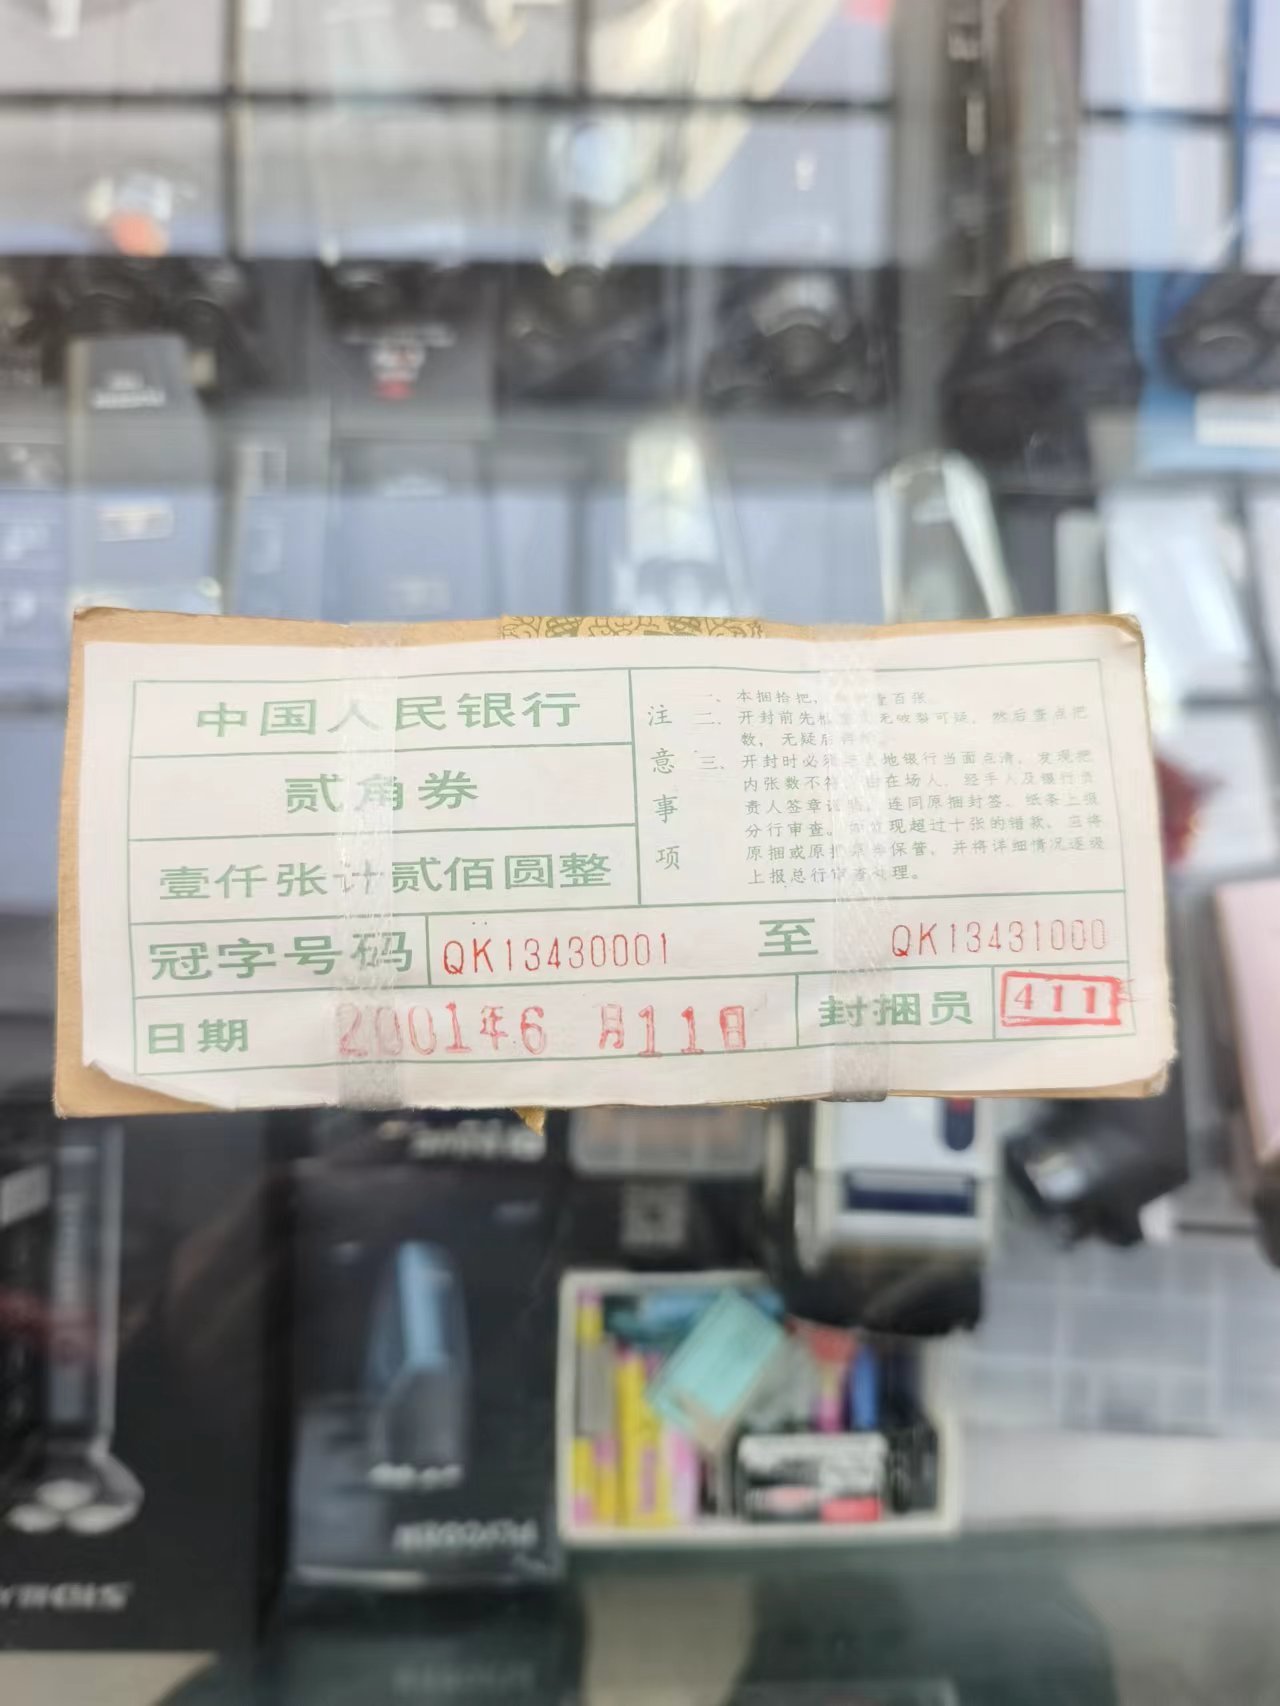 中国人民银行
贰角券
壹仟张计贰佰圆整
注意事项
一、本捆拾把，壹百张。
二、开封前先检无破裂可疑，然后查点把
数，无疑后
三、开封时必须与地银行当面点清，发现把
内张数不符，由在场人、经手人及银行负
责人签章证，连同原捆封签、纸条上报
分行审查。如发现超过十张的错款，应将
原捆或原把保管，并将详细情况逐级
上报总行审查处理。
冠字号码 QK13430001 至 QK13431000
日期 2001年6月11日 封捆员 411